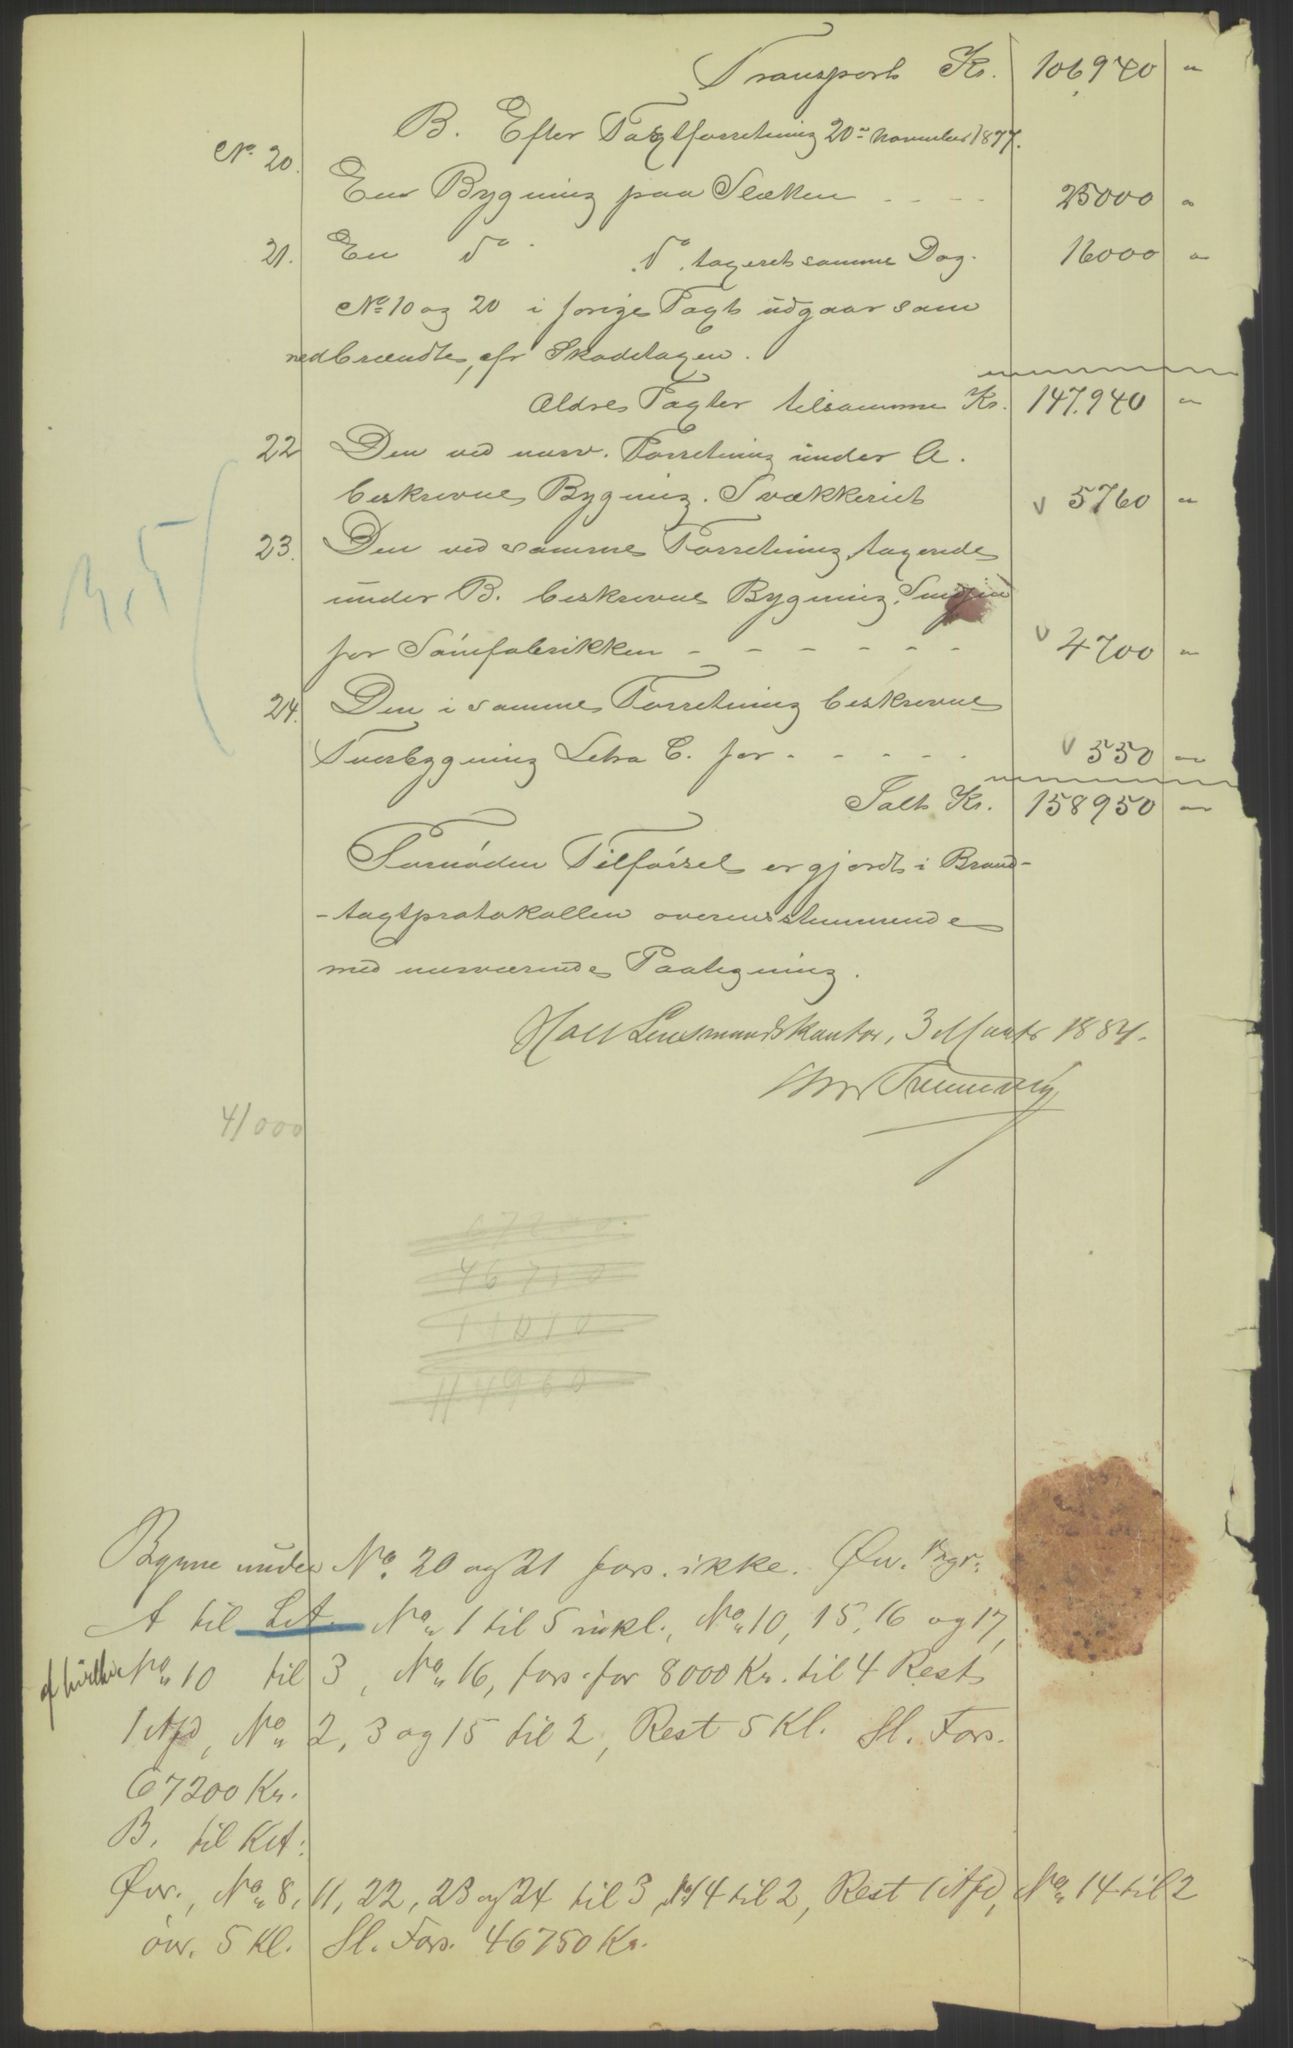 Transport Kr. 106,940 "
B. Efter Taxtforretning 20de November 1877.
No. 20. En Bygning paa Slæken - - - - 25000 "
21. En do do. taxeret samme Dag. 16000 "
No 10 og 20 i forige Taxt udgaar som
nedbrændte, cfr Skadetaxen.
Ældre Taxter tilsammen Kr. 147.940 "
22 Den ved nærv. Forretning under A.
beskrevne Bygning. Trækkeriet 5760 "
23. Den ved samme Forretning taxerede
under B. beskrevne Bygning,
for Sømfabrikken - - - - - - 4700 "
24. Den i samme Forretning beskrevne
Tverbygning Litra C. for - - - - - 550 "
Ialt Kr. 158950 "
Fornøden Tilførsel er gjordt i Brand-
-taxtprotokollen overensstemmende
med nærværende Paategning.
Lensmandskontor, 3 Marts 1884.
41000
67200.
46750
11010
114960
Bygne under No. 20 og 21 fors. ikke. Øv. Bygr.
A til Lit No. 1 til 5 inkl., No. 10, 15, 16 og 17,
af hvilke No. 10 til 3, No. 16, fors. for 8000 Kr. til 4 Rest
1 Afd, No. 2, 3 og 15 til 2, Rest 5 Kl. Sl. Fors.
67200 Kr.
B. til Kit:
Øvr., No. 8, 11, 22, 23 og 24 til 3, No 14 til 2, Rest 1 Afd, No. 14 til 2
øvr. 5 Kl. Sl. Fors. 46750 Kr.